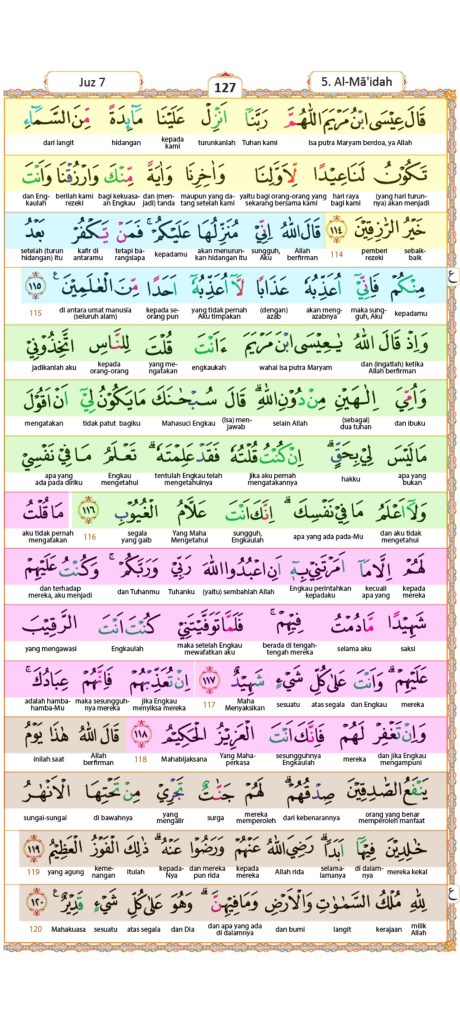 Juz 7
127
5. Al-Mā'idah
قَالَ عِيْسَى ابْنُ مَرْيَمَ اللّٰهُمَّ رَبَّنَآ اَنْزِلْ عَلَيْنَا مَاۤىِٕدَةً مِّنَ السَّمَاۤءِ
Isa putra Maryam berdoa, ya Allah Tuhan kami turunkanlah kepada kami hidangan dari langit
تَكُوْنُ لَنَا عِيْدًا لِّاَوَّلِنَا وَاٰخِرِنَا وَاٰيَةً مِّنْكَ وَارْزُقْنَا وَاَنْتَ
(yang hari turun-nya) akan menjadi hari raya bagi kami yaitu bagi orang-orang yang sekarang bersama kami maupun yang da-tang setelah kami dan (men-jadi) tanda bagi kekuasa-an Engkau berilah kami rezeki dan Eng-kaulah
خَيْرُ الرّٰزِقِيْنَ ١١٤ قَالَ اللّٰهُ اِنِّيْ مُنَزِّلُهَا عَلَيْكُمْ ۚ فَمَنْ يَّكْفُرْ بَعْدُ
sebaik-baik pemberi rezeki 114 Allah berfirman sungguh, Aku akan menurun-kan hidangan itu kepadamu tetapi ba-rangsiapa kafir di antaramu setelah (turun hidangan) itu
مِنْكُمْ فَاِنِّيْٓ اُعَذِّبُهٗ عَذَابًا لَّآ اُعَذِّبُهٗٓ اَحَدًا مِّنَ الْعٰلَمِيْنَ ࣖ ١١٥
kepadamu maka sung-guh, Aku akan meng-azabnya (dengan) azab yang tidak pernah Aku timpakan kepada se-orang pun di antara umat manusia (seluruh alam) 115
وَاِذْ قَالَ اللّٰهُ يٰعِيْسَى ابْنَ مَرْيَمَ ءَاَنْتَ قُلْتَ لِلنَّاسِ اتَّخِذُوْنِيْ
dan (ingatlah) ketika Allah berfirman wahai Isa putra Maryam engkaukah yang me-ngatakan kepada orang-orang jadikanlah aku
وَاُمِّيَ اِلٰهَيْنِ مِنْ دُوْنِ اللّٰهِ ۗ قَالَ سُبْحٰنَكَ مَا يَكُوْنُ لِيْٓ اَنْ اَقُوْلَ
dan ibuku (sebagai) dua tuhan selain Allah (Isa) men-jawab Mahasuci Engkau tidak patut bagiku mengatakan
مَا لَيْسَ لِيْ بِحَقٍّ ۗ اِنْ كُنْتُ قُلْتُهٗ فَقَدْ عَلِمْتَهٗ ۗ تَعْلَمُ مَا فِيْ نَفْسِيْ
apa yang bukan hakku jika aku pernah mengatakannya tentulah Engkau telah mengetahuinya Engkau mengetahui apa yang ada pada diriku
وَلَآ اَعْلَمُ مَا فِيْ نَفْسِكَ ۗ اِنَّكَ اَنْتَ عَلَّامُ الْغُيُوْبِ ١١٦ مَا قُلْتُ
dan aku tidak mengetahui apa yang ada pada-Mu sungguh, Engkaulah Yang Maha Mengetahui segala yang gaib 116 aku tidak pernah mengatakan
لَهُمْ اِلَّا مَآ اَمَرْتَنِيْ بِهٖٓ اَنِ اعْبُدُوا اللّٰهَ رَبِّيْ وَرَبَّكُمْ ۚ وَكُنْتُ عَلَيْهِمْ
kepada mereka kecuali apa yang Engkau perintahkan kepadaku (yaitu) sembahlah Allah Tuhanku dan Tuhanmu dan terhadap mereka, aku menjadi
شَهِيْدًا مَّا دُمْتُ فِيْهِمْ ۚ فَلَمَّا تَوَفَّيْتَنِيْ كُنْتَ اَنْتَ الرَّقِيْبَ
saksi selama aku berada di tengah-tengah mereka maka setelah Engkau mewafatkan aku Engkaulah yang mengawasi
عَلَيْهِمْ ۗ وَاَنْتَ عَلٰى كُلِّ شَيْءٍ شَهِيْدٌ ١١٧ اِنْ تُعَذِّبْهُمْ فَاِنَّهُمْ عِبَادُكَ ۚ
mereka dan Engkau atas segala sesuatu Maha Menyaksikan 117 jika Engkau menyiksa mereka maka sesungguh-nya mereka adalah hamba-hamba-Mu
وَاِنْ تَغْفِرْ لَهُمْ فَاِنَّكَ اَنْتَ الْعَزِيْزُ الْحَكِيْمُ ١١٨ قَالَ اللّٰهُ هٰذَا يَوْمُ
dan jika Engkau mengampuni mereka sesungguhnya Engkaulah Yang Maha-perkasa Mahabijaksana 118 Allah berfirman Inilah saat
يَنْفَعُ الصّٰدِقِيْنَ صِدْقُهُمْ ۗ لَهُمْ جَنّٰتٌ تَجْرِيْ مِنْ تَحْتِهَا الْاَنْهٰرُ
orang yang benar memperoleh manfaat dari kebenarannya mereka memperoleh surga yang mengalir di bawahnya sungai-sungai
خٰلِدِيْنَ فِيْهَآ اَبَدًا ۗ رَضِيَ اللّٰهُ عَنْهُمْ وَرَضُوْا عَنْهُ ۗ ذٰلِكَ الْفَوْزُ الْعَظِيْمُ ١١٩
mereka kekal di dalam-nya selama-lamanya Allah rida kepada mereka dan mereka pun rida kepada-Nya itulah keme-nangan yang agung 119
لِلّٰهِ مُلْكُ السَّمٰوٰتِ وَالْاَرْضِ وَمَا فِيْهِنَّ ۗ وَهُوَ عَلٰى كُلِّ شَيْءٍ قَدِيْرٌ ࣖ ١٢٠
milik Allah kerajaan langit dan bumi dan apa yang ada di dalamnya dan Dia atas segala sesuatu Mahakuasa 120
ع
ع